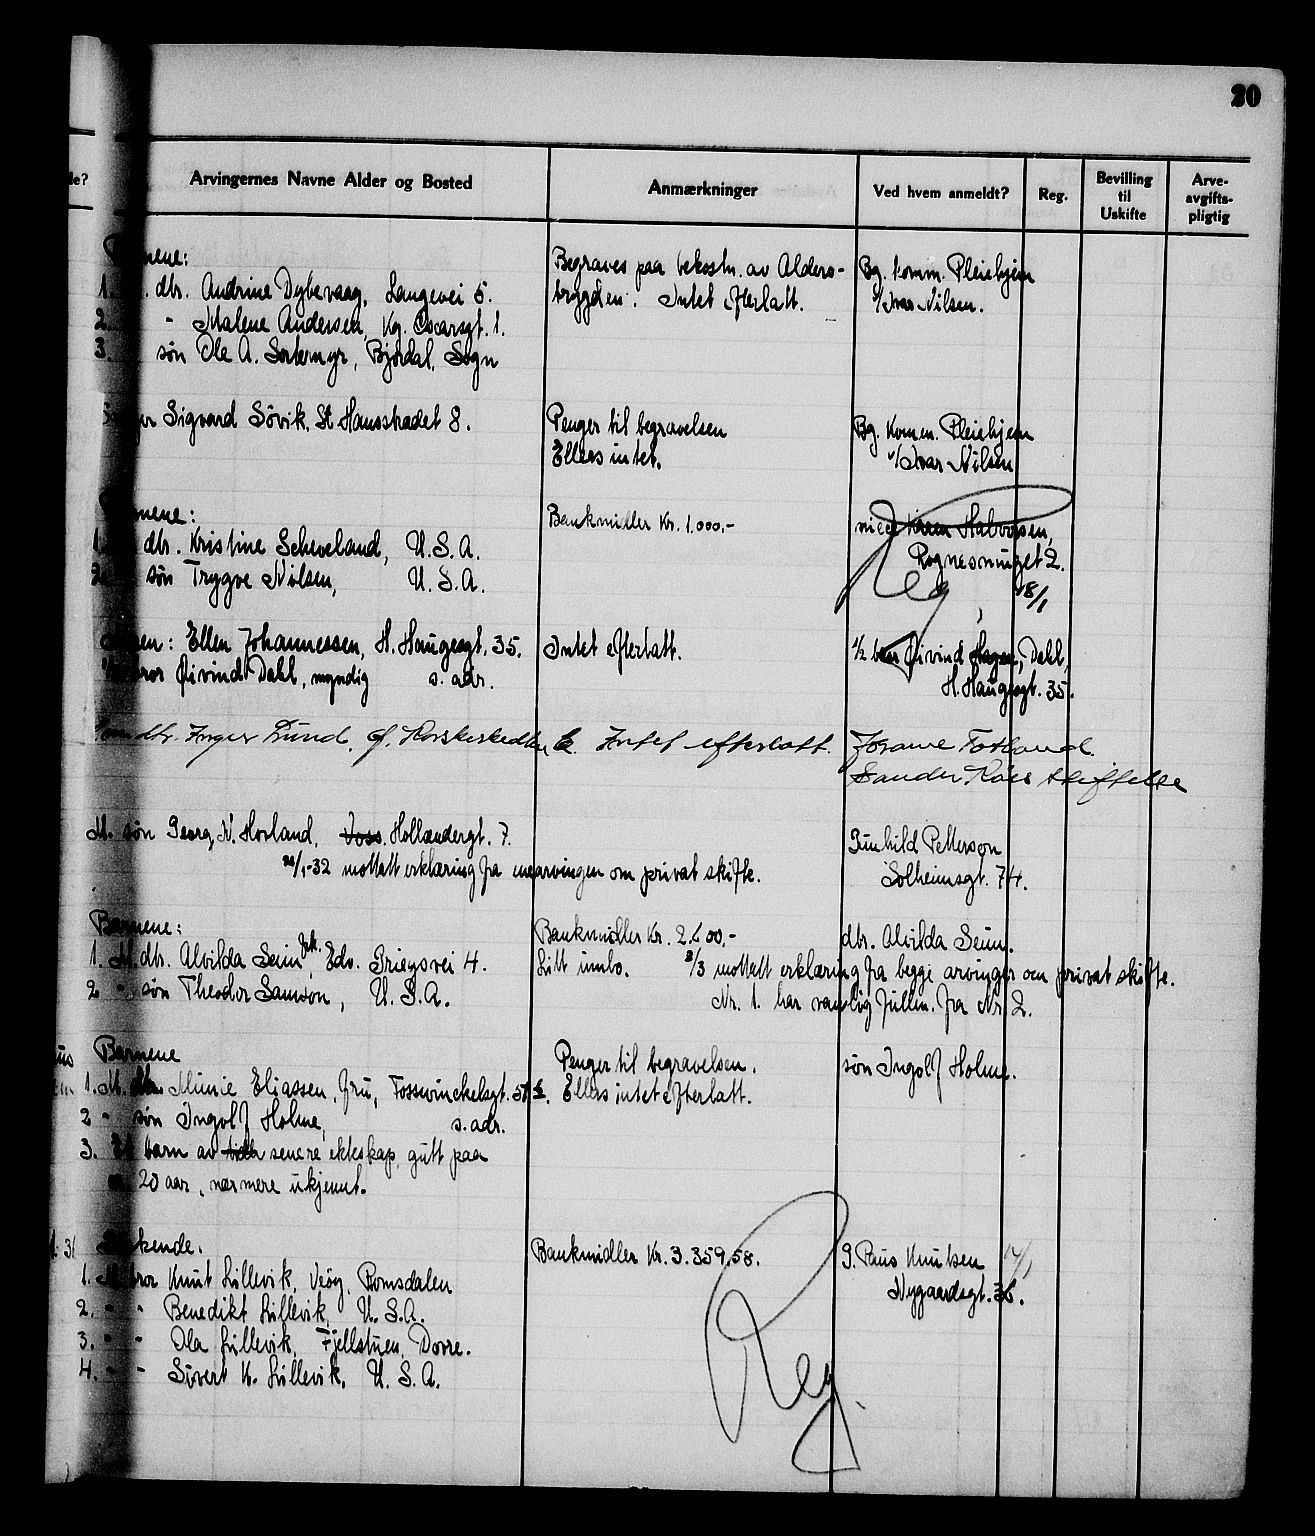 20
de?
Arvingernes Navne Alder og Bosted
Anmærkninger
Ved hvem anmeldt?
Reg.
Bevilling til Uskifte
Arve-avgifts-pligtig
nene:
1. dtr. Andrine Dybevaag, Langevei 5.
2. " Malene Andersen, Kg. Oscarsgt. 1.
3. søn Ole A. Sortemyr, Bjordal, Sogn
Begraves paa bekostn. av Alders-
trygden. Intet efterlatt.
Bg. komm. Pleiehjem
v/Ivar Nilsen.
Sigvard Søvik, St. Hansstrædet 8.
Penger til begravelsen
Ellers intet.
Bg. Komm. Pleiehjem
v/Ivar Nilsen
nene:
1. dtr. Kristine Scheveland, U.S.A.
2. søn Trygve Nilsen, U.S.A.
Bankmidler Kr. 1.000,-
niece Karen Halvorsen,
Rognesmuget 2.
Reg
18/1
Ellen Johannessen, H. Haugesgt. 35.
bror Øivind Dahl, myndig s. adr.
Intet efterlatt.
1/2 bror Øivind Hagen, Dahl,
H. Haugesgt. 35.
dtr. Inger Lund,
Intet efterlatt.
Josame Totland
Sander Kaaes stiftelse
M. søn Georg N. Hovland, Voss. Hollændergt. 7.
/1-32 mottatt erklæring fra enearvingen om privat skifte.
Gunhild Petterson
Solheimsgt. 74.
Barnene:
1. M. dtr. Alvilda Seim frk., Edv. Griegsvei 4.
2 " søn Theodor Samson, U.S.A.
Bankmidler Kr. 2.600,-
Litt innbo. 2/3 mottatt erklæring fra begge arvinger om privat skifte.
Nr. 1. har vanlig fullm. fra Nr. 2.
dtr. Alvilda Seim.
Barnene
1. M. dtr. Minie Eliassen, fru, Fosswinckelsgt.
2 " søn Ingolf Holme, s. adr.
3. Et barn av senere ekteskap, gutt paa
20 aar, nærmere ukjennt.
Penger til begravelsen.
Ellers intet efterlatt.
søn Ingolf Holme.
Søskende.
1. M. bror Knut Lillevik, Veøy, Romsdalen
2. " " Benedikt Lillevik, U.S.A.
3. " " Ola Lillevik, Fjellstuen, Dovre.
4. " " Sivert K. Lillevik, U.S.A.
Bankmidler Kr. 3.359,58.
Reg.
Knutsen
Nygaardsgt. 36.